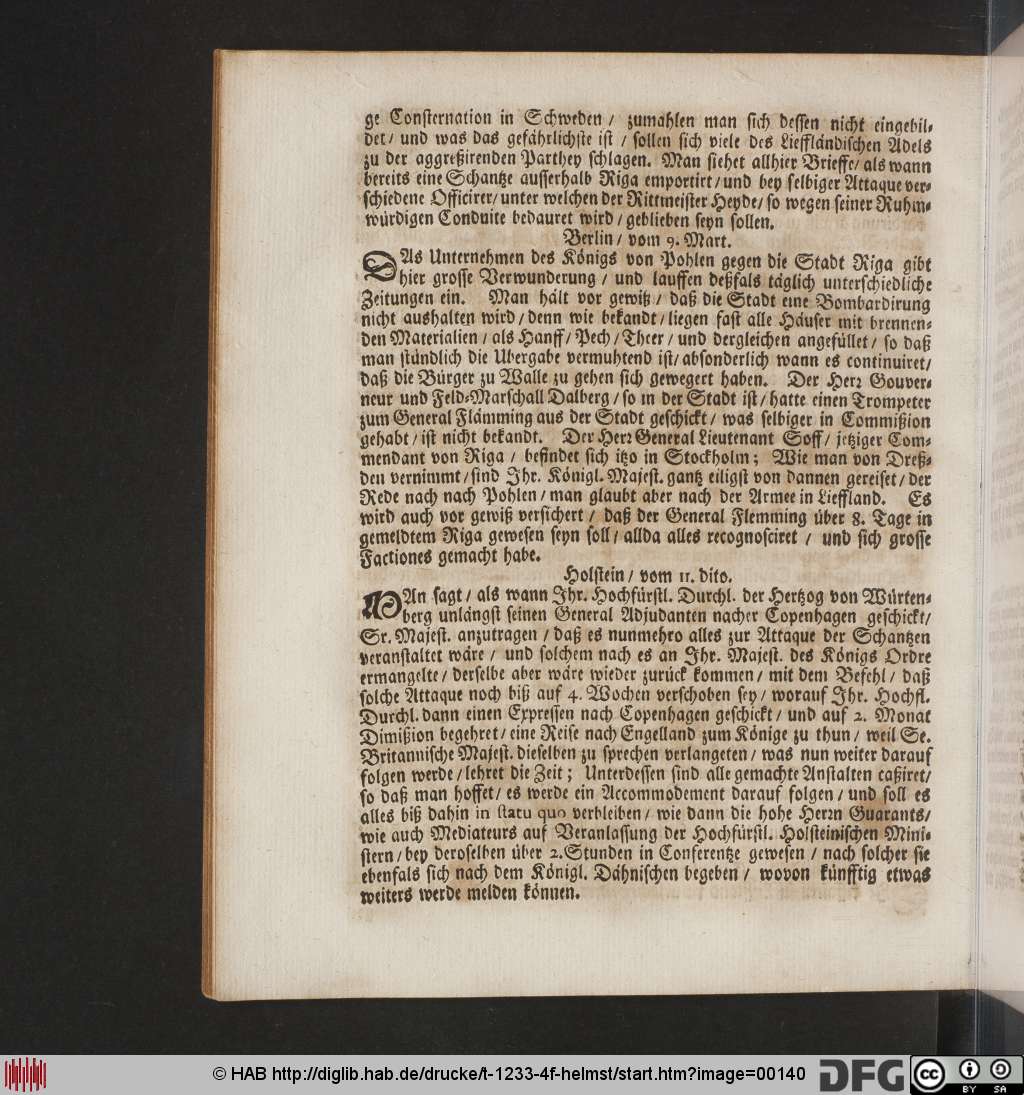 ge Consternation in Schweden / zumahlen man sich dessen nicht eingebil-
det / und was das gefährlichste ist / sollen sich viele des Lieffländischen Adels
zu der aggreßirenden Parthey schlagen. Man siehet allhier Brieffe / als wann
bereits eine Schantze ausserhalb Riga emportirt / und bey selbiger Attaque ver-
schiedene Officirer / unter welchen der Rittmeister Heyde / so wegen seiner Ruhm-
würdigen Conduite bedauret wird / geblieben seyn sollen.
Berlin / vom 9. Mart.
DAs Unternehmen des Königs von Pohlen gegen die Stadt Riga gibt
hier grosse Verwunderung / und lauffen deßfals täglich unterschiedliche
Zeitungen ein. Man hält vor gewiß / daß die Stadt eine Bombardirung
nicht aushalten wird / denn wie bekandt / liegen fast alle Häuser mit brennen-
den Materialien / als Hanff / Pech / Theer / und dergleichen angefüllet / so daß
man stündlich die Ubergabe vermuhtend ist / absonderlich wann es continuiret /
daß die Bürger zu Walle zu gehen sich gewegert haben. Der Herr Gouver-
neur und Feld-Marschall Dalberg / so in der Stadt ist / hatte einen Trompeter
zum General Flämming aus der Stadt geschickt / was selbiger in Commißion
gehabt / ist nicht bekandt. Der Herr General Lieutenant Soff / jetziger Com-
mendant von Riga / befindet sich itzo in Stockholm; Wie man von Dreß-
den vernimmt / sind Ihr. Königl. Majest. gantz eiligst von dannen gereiset / der
Rede nach nach Pohlen / man glaubt aber nach der Armee in Lieffland. Es
wird auch vor gewiß versichert / daß der General Flemming über 8. Tage in
gemeldtem Riga gewesen seyn soll / allda alles recognosciret / und sich grosse
Factiones gemacht habe.
Holstein / vom 11. dito.
MAn sagt / als wann Ihr. Hochfürstl. Durchl. der Hertzog von Würten-
berg unlängst seinen General Adjudanten nacher Copenhagen geschickt /
Sr. Majest. anzutragen / daß es nunmehro alles zur Attaque der Schantzen
veranstaltet wäre / und solchem nach es an Ihr. Majest. des Königs Ordre
ermangelte / derselbe aber wäre wieder zurück kommen / mit dem Befehl / daß
solche Attaque noch biß auf 4. Wochen verschoben sey / worauf Ihr. Hochfl.
Durchl. dann einen Expressen nach Copenhagen geschickt / und auf 2. Monat
Dimißion begehret / eine Reise nach Engelland zum Könige zu thun / weil Se.
Britannische Majest. dieselben zu sprechen verlangeten / was nun weiter darauf
folgen werde / lehret die Zeit; Unterdessen sind alle gemachte Anstalten caßiret /
so daß man hoffet / es werde ein Accommodement darauf folgen / und soll es
alles biß dahin in statu quo verbleiben / wie dann die hohe Herrn Guarants /
wie auch Mediateurs auf Veranlassung der Hochfürstl. Holsteinischen Mini-
stern / bey deroselben über 2. Stunden in Conferentze gewesen / nach solcher sie
ebenfals sich nach dem Königl. Dähnischen begeben / wovon künfftig etwas
weiters werde melden können.
© HAB http://diglib.hab.de/drucke/t-1233-4f-helmst/start.htm?image=00140
DFG
cc BY SA